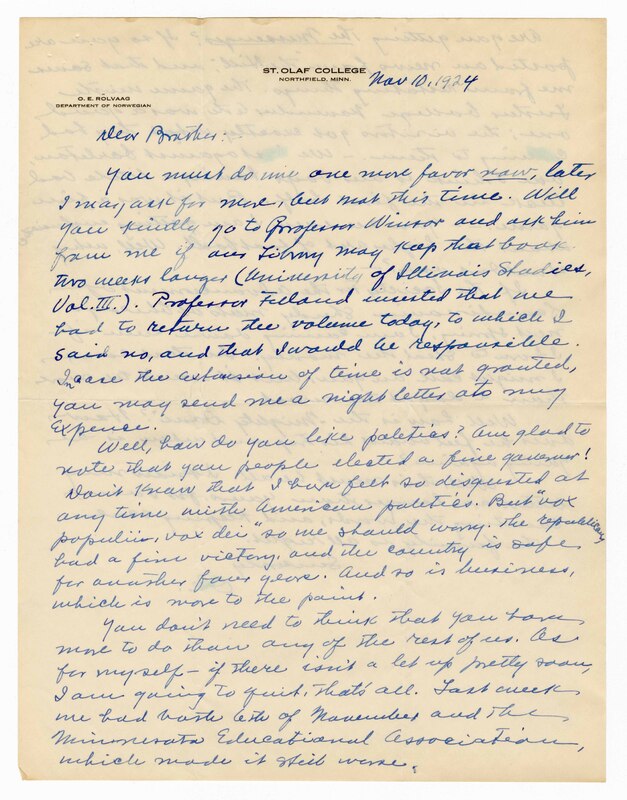 ST. OLAF COLLEGE
NORTHFIELD, MINN.
Nov 10, 1924
O. E. ROLVAAG
DEPARTMENT OF NORWEGIAN
Dear Brother:
You must do me one more favor now, later
I may ask for more, but not this time. Will
you kindly go to Professor Winsor and ask him
from me if our Library may keep that book
two weeks longer (University of Illinois Studies,
Vol. III.). Professor Felland insisted that we
had to return the volume today, to which I
said no, and that I would be responsible.
In case the extension of time is not granted,
you may send me a night letter ato my
Expence.
Well, how do you like poletics? Am glad to
note that you people elected a fine governor!
Don't know that I have felt so disgusted at
any time with American poletics. But "vox
populii, vox dei" so we should worry. The republicans
had a fine victory, and the country is safe
for another four years. And so is business,
which is more to the point.
You don't need to think that you have
more to do than any of the rest of us. As
for myself – if there isn't a let up pretty soon,
I am going to quit, that's all. Last week
we had both 6th of November and the
Minnesota Educational Association,
which made it still worse.